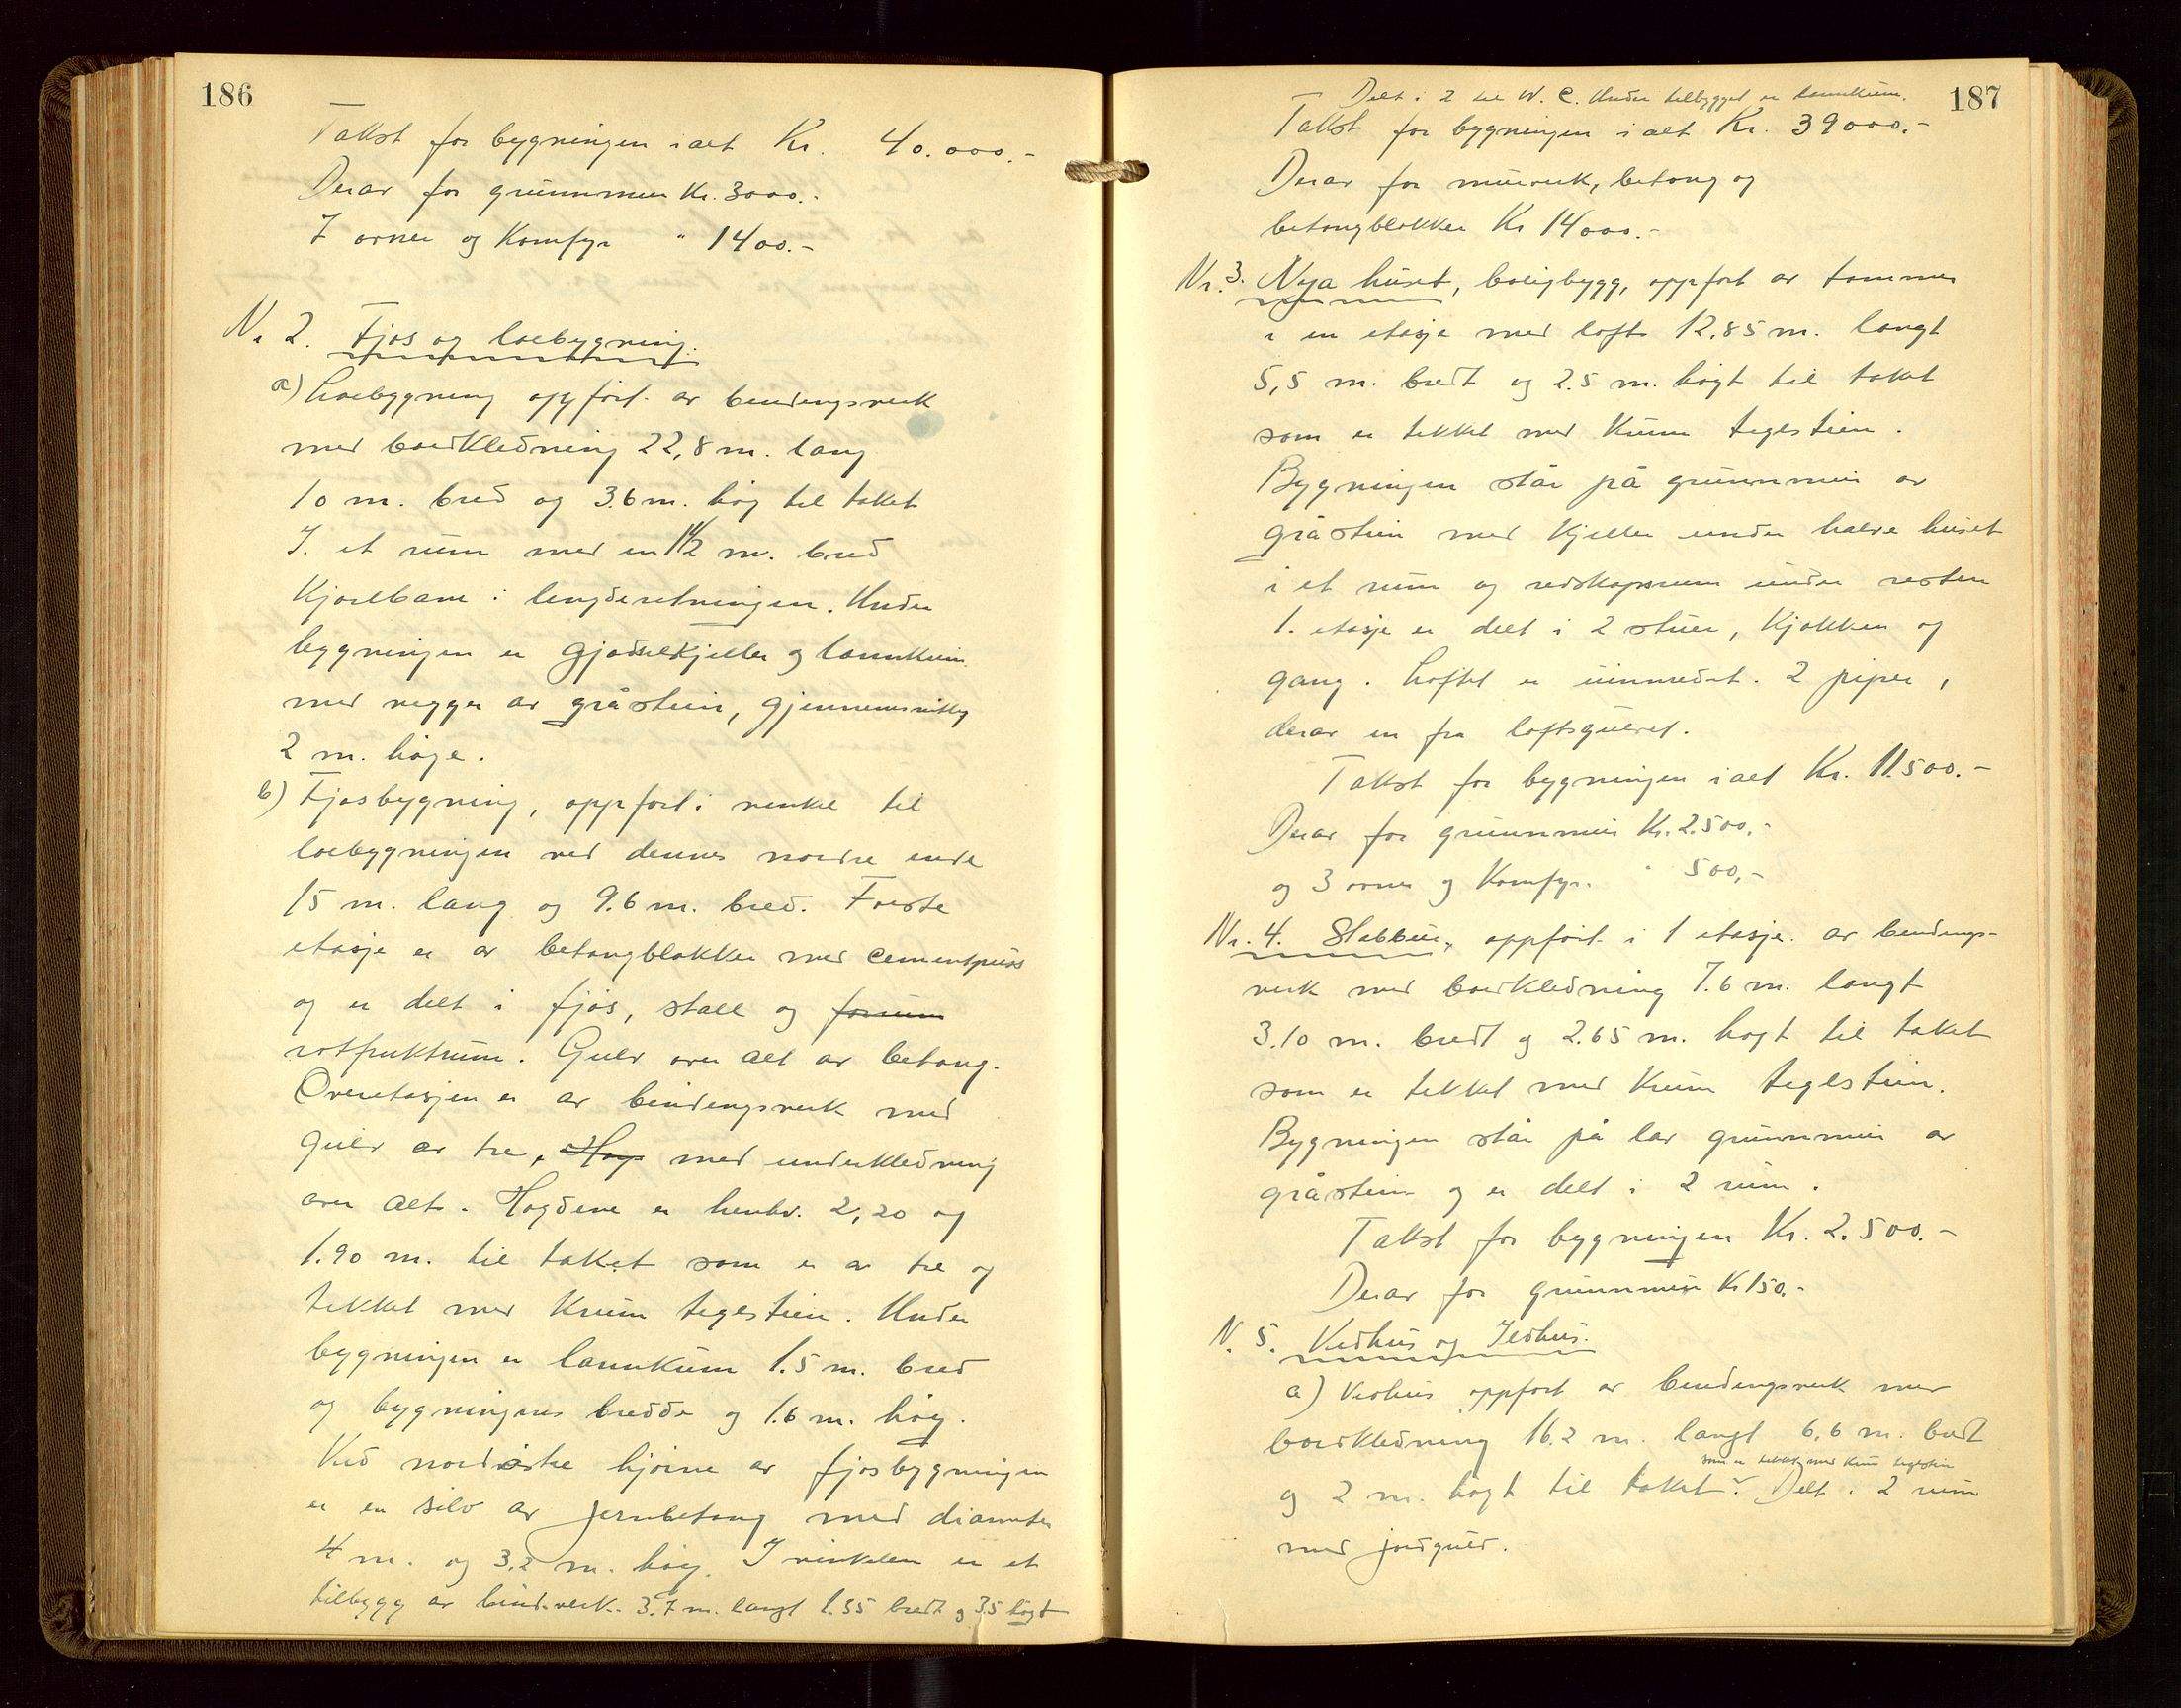 186
Takst for bygningen i alt Kr. 40.000.-
Derav for grunnmur Kr. 3000.-
7 ovner og Komfyr " 1400.-
Nr. 2. Fjøs og løebygning.
a) Løebygning oppført av bendingsverk
med bordkledning 22,8 m. lang
10 m. bred og 3.6 m. høg til taket
I. et rum med en 1 1/2 m. bred
Kjørebane i lengderetningen. Under
bygningen er gjødselkjeller og lannkum
med vegger av gråstein, gjennemsnitlig
2 m. høge.
b) Fjøsbygning, oppført i vinkel til
løebygningen ved dennes nordre ende
15 m. lang og 9.6 m. bred. Første
etasje er av betongblokker med cementpuss
og er delt i fjøs, stall og forrum
rotfruktrum. Gulv over alt av betong.
Overetasjen er av bindingsverk med
gulv av tre, Høg med underkledning
over alt. Høgdene er henhv. 2,20 og
1.90 m. til taket som er av tre og
tekket med Krum teglstein. Under
bygningen er lannkum 1.5 m. bred
og bygningens bredde og 1.6 m. høg.
Ved nordøstre hjørne av fjøsbygningen
er en silo av jernbetong med diameter
4 m. og 3.2 m. høg. I vinkelen er et
tilbygg av bind.verk. 3.7 m. langt 1.55 bredt og 3.5 høgt
187
Delt i 2 til W.C. Under tilbygget er lannkum.
Takst for bygningen i alt Kr. 39000.-
Derav for murverk, betong og
betongblokker Kr 14000.-
Nr. 3. Nya huset, boligbygg, oppført av tømmer
i en etasje med loft 12,85 m. langt
5,5 m. bredt og 2.5 m. høgt til taket
som er tekket med Krum teglstein.
Bygningen står på grunnmur av
gråstein med Kjeller under halve huset
i et rum og redskapsrum under resten
1. etasje er delt i 2 stuer, Kjøkken og
gang. Loftet er uinnredet. 2 piper,
derav en fra loftsgulvet.
Takst for bygningen i alt Kr. 11.500.-
Derav for grunnmur Kr. 2.500.-
og 3 ovner og Komfyr. " 500,-
Nr. 4. Stabbur, oppført i 1 etasje. av bendings-
verk med bordkledning 7.6 m. langt
3.10 m. bredt og 2.65 m. høgt til taket
som er tekket med Krum teglstein.
Bygningen står på lav grunnmur av
gråstein og er delt i 2 rum.
Takst for bygningen Kr. 2.500.-
Derav for grunnmur Kr 150.-
N. 5. Vedhus og Ildhus.
a) Vedhus oppført av bendingsverk med
bordkledning 16.2 m. langt 6,6 m. bredt
som er tekket med Krum teglstein
og 2 m. høgt til taket. Delt i 2 rum
med jordgulv.